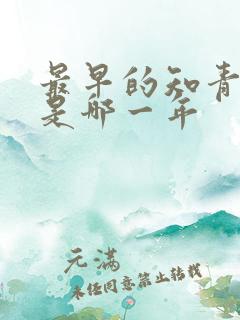 最早的知青
是哪一年
元满
未经同意禁止转载